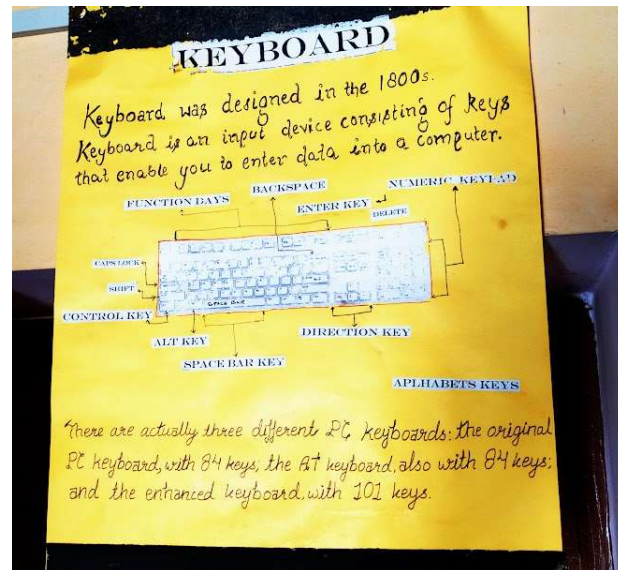 KEYBOARD
Keyboard was designed in the 1800s.
Keyboard is an input device consisting of keys
that enable you to enter data into a computer.
BACKSPACE
NUMERIC KEYPAD
FUNCTION DAYS
ENTER KEY
DELETE
CAPS LOCK
SHIFT
SPACE BAR
CONTROL KEY
ALT KEY
DIRECTION KEY
SPACE BAR KEY
APLHABETS KEYS
There are actually three different PC keyboards: the original
PC keyboard, with 84 keys; the AT keyboard, also with 84 keys;
and the enhanced keyboard, with 101 keys.